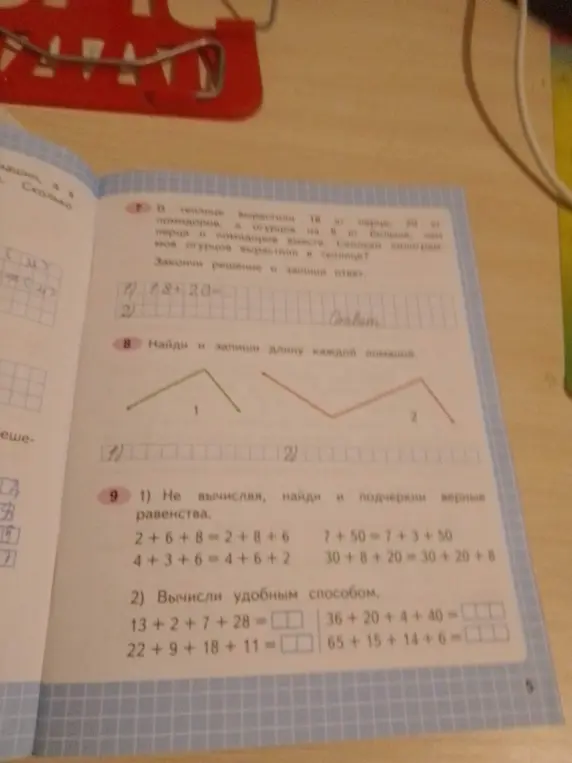 Сколько
еше-
7 В теплице вырастили 18 кг перца, 20 кг
помидоров, а огурцов на 8 кг больше, чем
перца и помидоров вместе. Сколько килограм-
мов огурцов вырастили в теплице?
Закончи решение и запиши ответ.
1) 18+20=
2)
Ответ
8 Найди и запиши длину каждой ломаной.
1
2
1)
2)
9 1) Не вычисляя, найди и подчеркни верные
равенства.
2 + 6 + 8 = 2 + 8 + 6 7 + 50 = 7 + 3 + 50
4 + 3 + 6 = 4 + 6 + 2 30 + 8 + 20 = 30 + 20 + 8
2) Вычисли удобным способом.
13 + 2 + 7 + 28 = 36 + 20 + 4 + 40 =
22 + 9 + 18 + 11 = 65 + 15 + 14 + 6 =
5